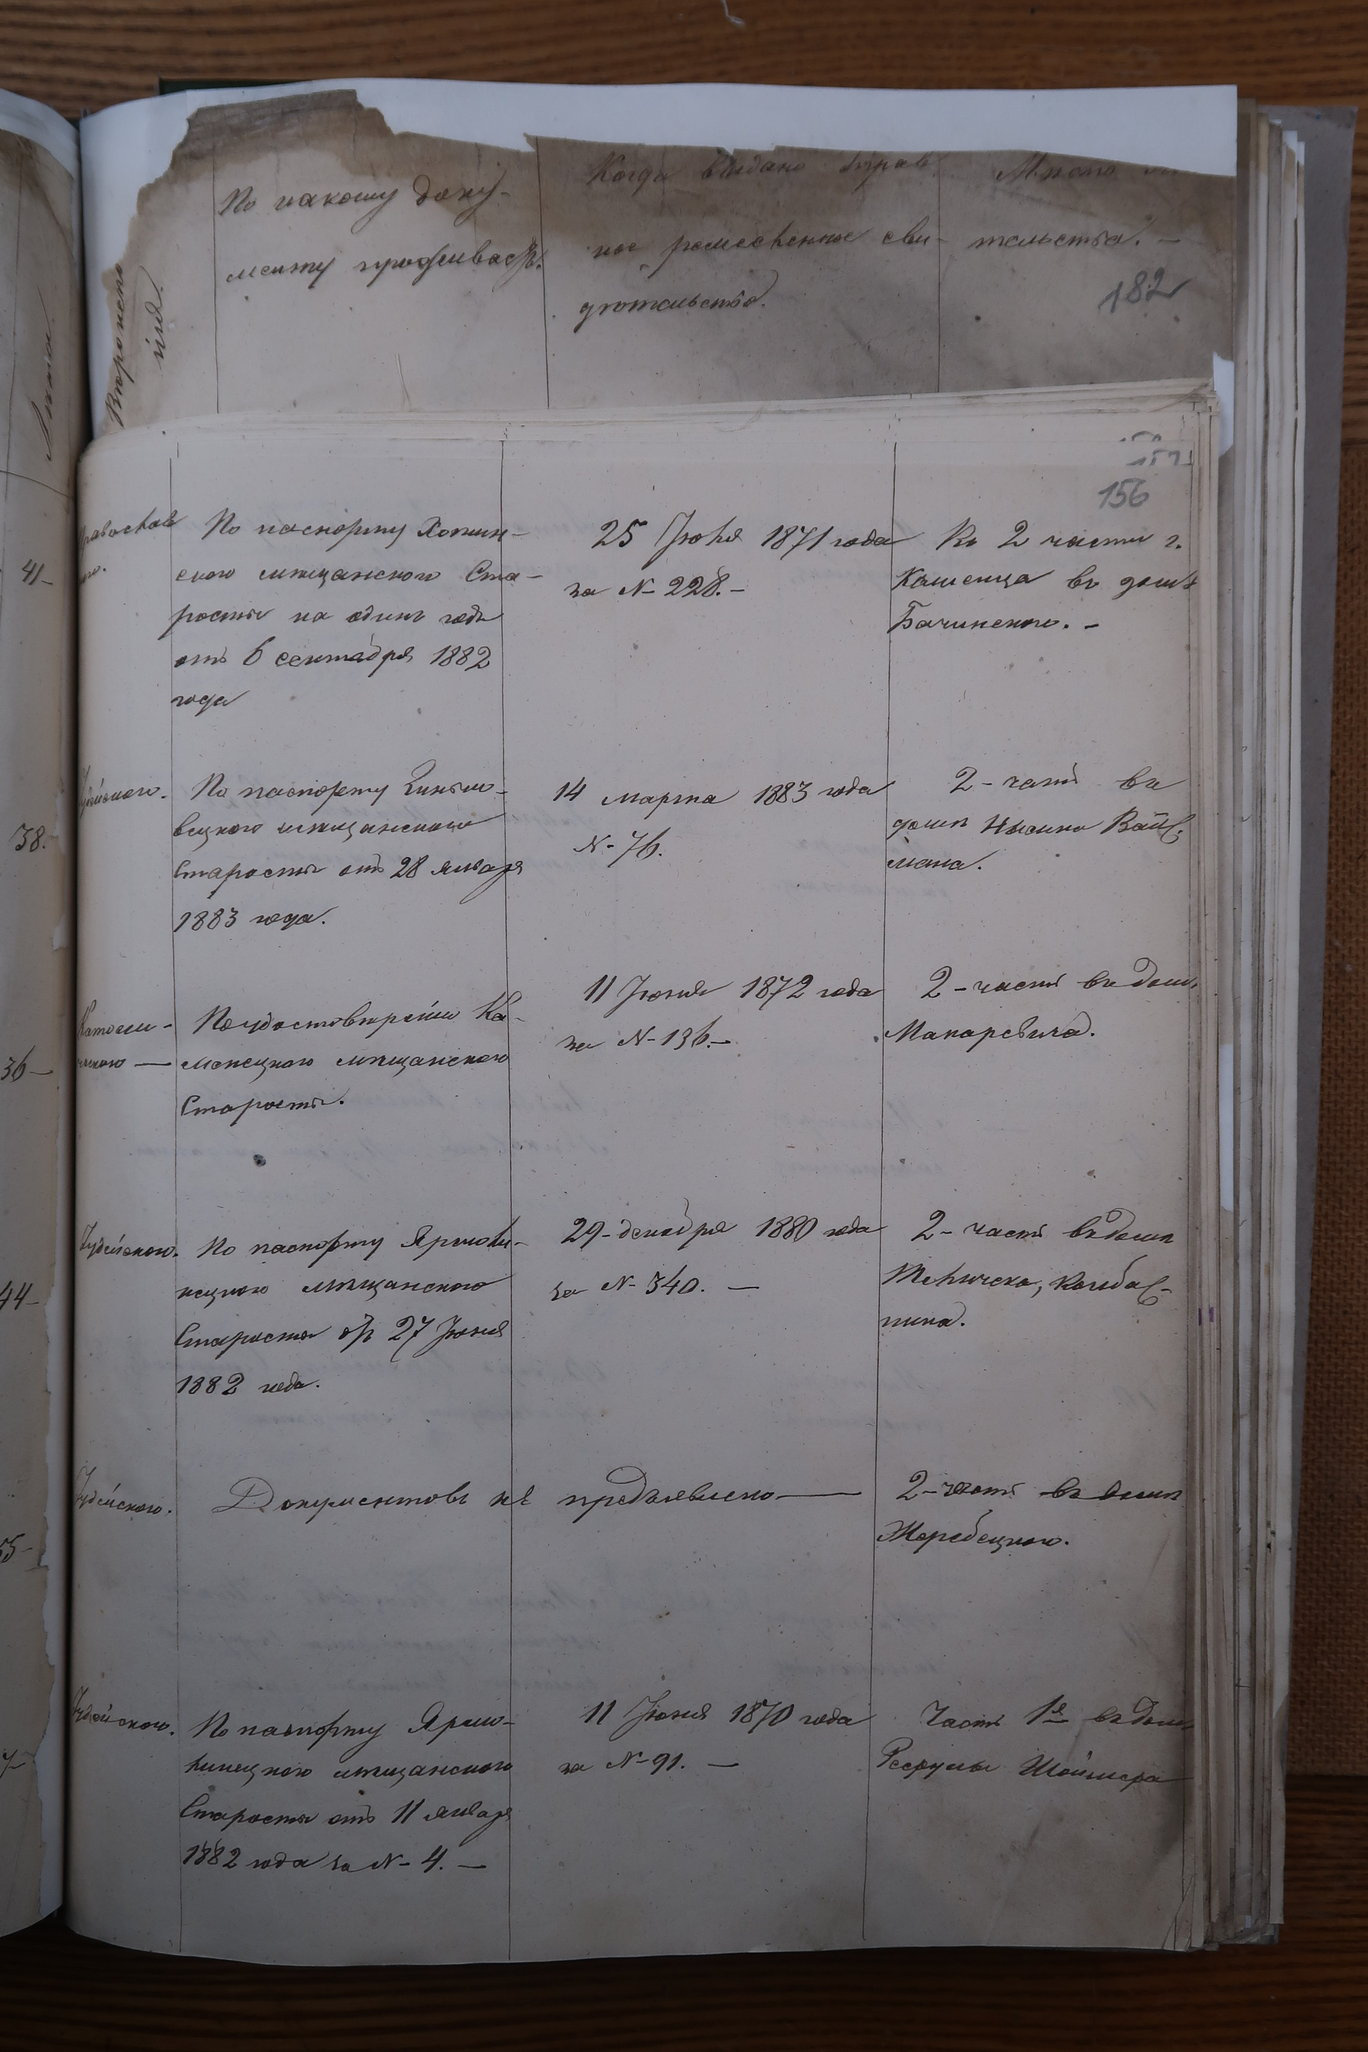 Вѣроиспо
йія.
По какому доку-
менту проживаетъ.
Когда выдано Управ
ное ремесленное сви-
дѣтельство.
Мѣсто
тельства. —
182
156
Православ
41-
По паспорту Хотин-
скаго мѣщанскаго Ста-
росты на одинъ годъ
отъ 6 сентября 1882
года
25 Іюля 1871 года
за № 228. -
Во 2 части г.
Каменца въ домѣ
Бачинскаго. -
Іудейскаго.
38.
По паспорту
вецкаго мѣщанскаго
Старосты отъ 28 января
1883 года.
14 марта 1883 года
№ 76.
2 - часть въ
домѣ Нысина Вайс-
мана.
Католи-
ческаго —
36-
По удостовѣренію Ка-
менецкаго мѣщанскаго
Старосты.
11 Іюня 1872 года
за № 136. -
2 - часть въ домѣ
Макаревича.
Іудейскаго.
44-
По паспорту Ярмоли-
нецкаго мѣщанскаго
Старосты отъ 27 Іюня
1882 года.
29 - декабря 1880 года
за № 340. —
2 - часть въ домѣ
колбас-
ника.
Іудейскаго.
55-
Документовъ не предъявлено —
2 - часть въ домѣ
Жеребецкаго.
Іудейскаго.
По паспорту Ярмо-
линецкаго мѣщанскаго
Старосты отъ 11 января
1882 года за № 4. —
11 Іюня 1870 года
за № 91. —
Часть 1я въ домѣ
Шойлера